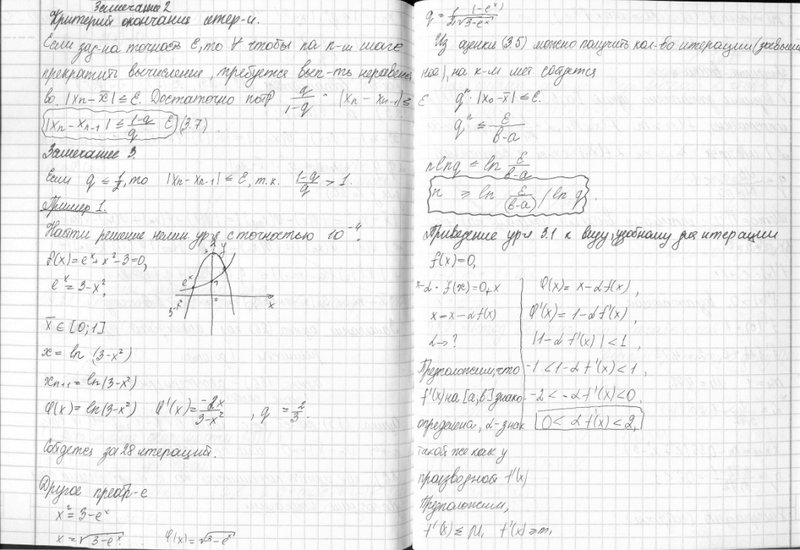 Замечание 2
Критерий окончания итер-и.
Если зад-на точность ε, то чтобы на n-м шаге
прекратить вычисление, требуется вып-ть неравенс
во |xn - x̄| ≤ ε. Достаточно потр q/(1-q) · |xn - xn-1| ≤
|xn - xn-1| ≤ (1-q)/q ε (3.7)
Замечание 3.
Если q ≤ 1/2, то |xn - xn-1| ≤ ε, т.к. (1-q)/q > 1.
Пример 1.
Найти решение нелин ур-я с точностью 10⁻⁴.
f(x) = eˣ + x² - 3 = 0,
eˣ = 3 - x²,
y
eˣ
3-x²
x
x̄ ∈ [0; 1]
x = ln (3-x²)
xn+1 = ln(3-x²)
φ(x) = ln(3-x²) φ'(x) = -2x/(3-x²), q = 2/3.
Сойдется за 28 итераций.
Другое преобр-е
x² = 3 - eˣ
x = √(3-eˣ) φ(x) = √(3-eˣ)
Из оценки (3.5) можно получить кол-во итераций
на к-м мет сойдется
ε qⁿ · |x₀ - x̄| ≤ ε.
qⁿ ≤ ε/(b-a)
n ln q ≤ ln ε/(b-a)
n ≥ ln ε/(b-a) / ln q.
Приведение ур-я 3.1 к виду, удобному для итерации
f(x) = 0,
-α · f(x) = 0, + x φ(x) = x - αf(x),
x = x - αf(x) φ'(x) = 1 - αf'(x),
α -> ? |1 - αf'(x)| < 1,
Предположим, что -1 < 1 - αf'(x) < 1
f'(x) на [a, b] знако -2 < -αf'(x) < 0
определена, α-знак 0 < αf(x) < 2,
такой же как у
производной f'(x)
Предположим,
f'(x) ≤ M, f'(x) ≥ m,